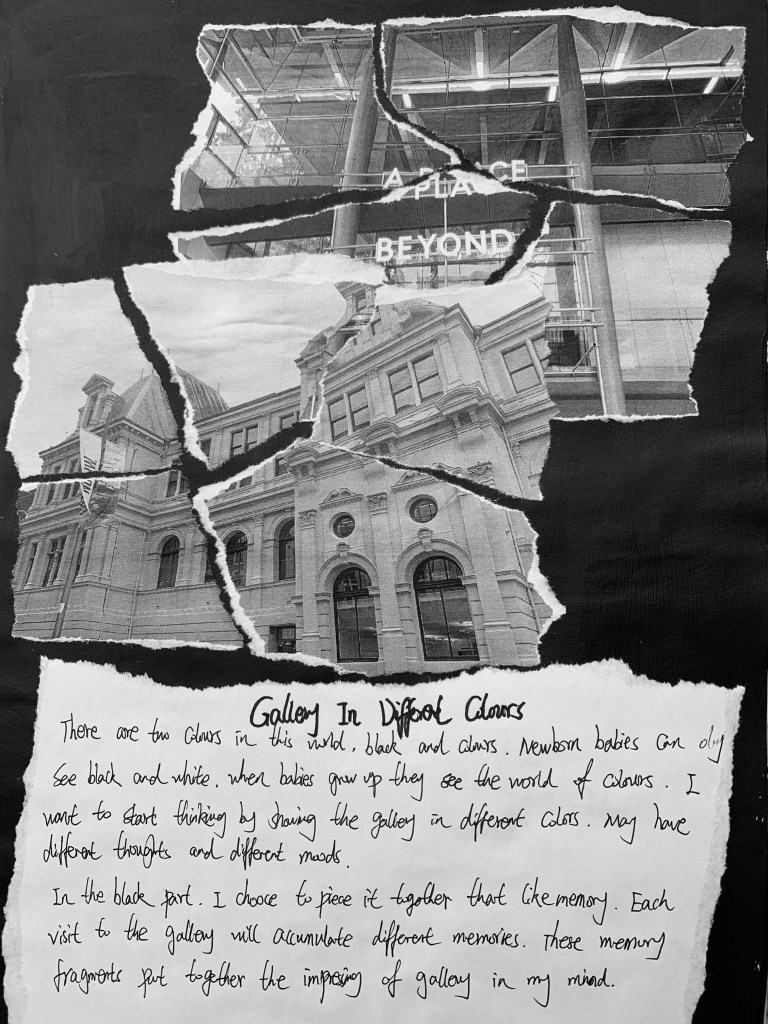 A PLACE
BEYOND
Gallery In Different Colours
There are two colours in this world, black and colours. Newborn babies can only
see black and white, when babies grow up they see the world of colours. I
want to start thinking by showing the gallery in different colors. May have
different thoughts and different moods.
In the black part. I choose to piece it together that like memory. Each
visit to the gallery will accumulate different memories. These memory
fragments put together the of gallery in my mind.